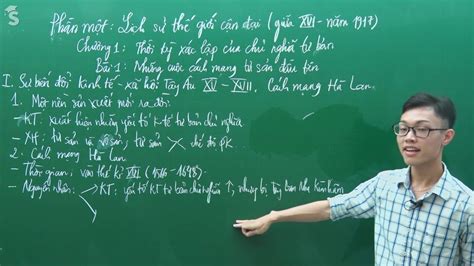 Phần một: Lịch sử thế giới cận đại (giữa XVI - năm 1917)
Chương 1: Thời kỳ xác lập của chủ nghĩa tư bản
Bài 1: Những cuộc cách mạng tư sản đầu tiên
I. Sự biến đổi kinh tế - xã hội Tây Âu XV - XVII. Cách mạng Hà Lan
1. Một nền sản xuất mới ra đời:
- KT: xuất hiện những yếu tố k-tế tư bản chủ nghĩa
- XH: tư sản và vô sản; tư sản chế độ PK
2. Cách mạng Hà Lan
- Thời gian: vào thế kỉ XVI (1566 - 1648)
- Nguyên nhân: KT: yếu tố KT tư bản chủ nghĩa ↑, nhưng bị Tây Ban Nha kìm hãm